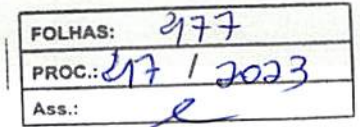 FOLHAS: 2177
PROC.: 217 / 2023
Ass.: